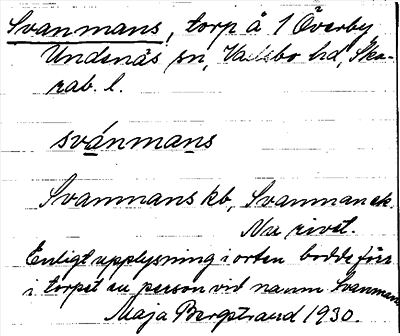 Svanmans, torp å 1 Överby
Undenäs sn, Vadsbo hd, Ska-
rab. l.
svánmans
Svanmans kb, Svanman ek.
Nu rivet.
Enligt upplysning i orten bodde förr
i torpet en person vid namn Svanman
Maja Bergstrand 1930.